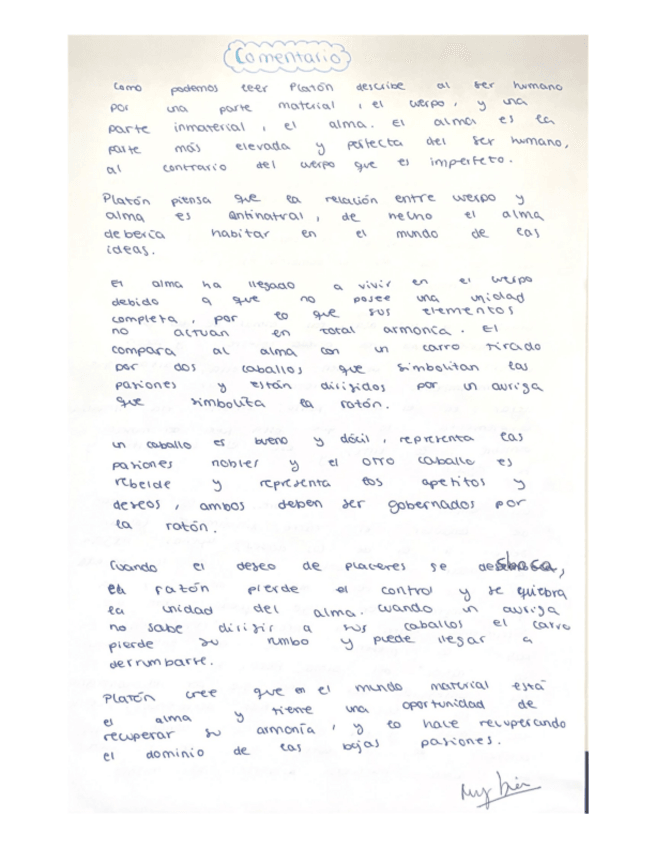 Comentario
Como podemos leer Platón describe al ser humano
por una parte material, el cuerpo, y una
parte inmaterial, el alma. El alma es la
parte más elevada y perfecta del ser humano,
al contrario del cuerpo que es imperfeto.
Platón piensa que la relación entre cuerpo y
alma es antinatral, de hecho el alma
debería habitar en el mundo de las
ideas.
El alma ha llegado a vivir en el cuerpo
debido a que no posee una unidad
completa, por lo que sus elementos
no actuan en total armonía. El
compara al alma con un carro tirado
por dos caballos que simbolizan las
pasiones y están dirigidos por un auriga
que simboliza la razón.
un caballo es bueno y dócil, representa las
pasiones nobles y el otro caballo es
rebelde y representa los apetitos y
deseos, ambos deben ser gobernados por
la razón.
Cuando el deseo de placeres se desboca,
la razón pierde el control y se quiebra
la unidad del alma. Cuando un auriga
no sabe dirigir a sus caballos el carro
pierde su rumbo y puede llegar a
derrumbarse.
Platón cree que en el mundo material está
el alma y tiene una oportunidad de
recuperar su armonía, y lo hace recuperando
el dominio de las bajas pasiones.
Muy bien